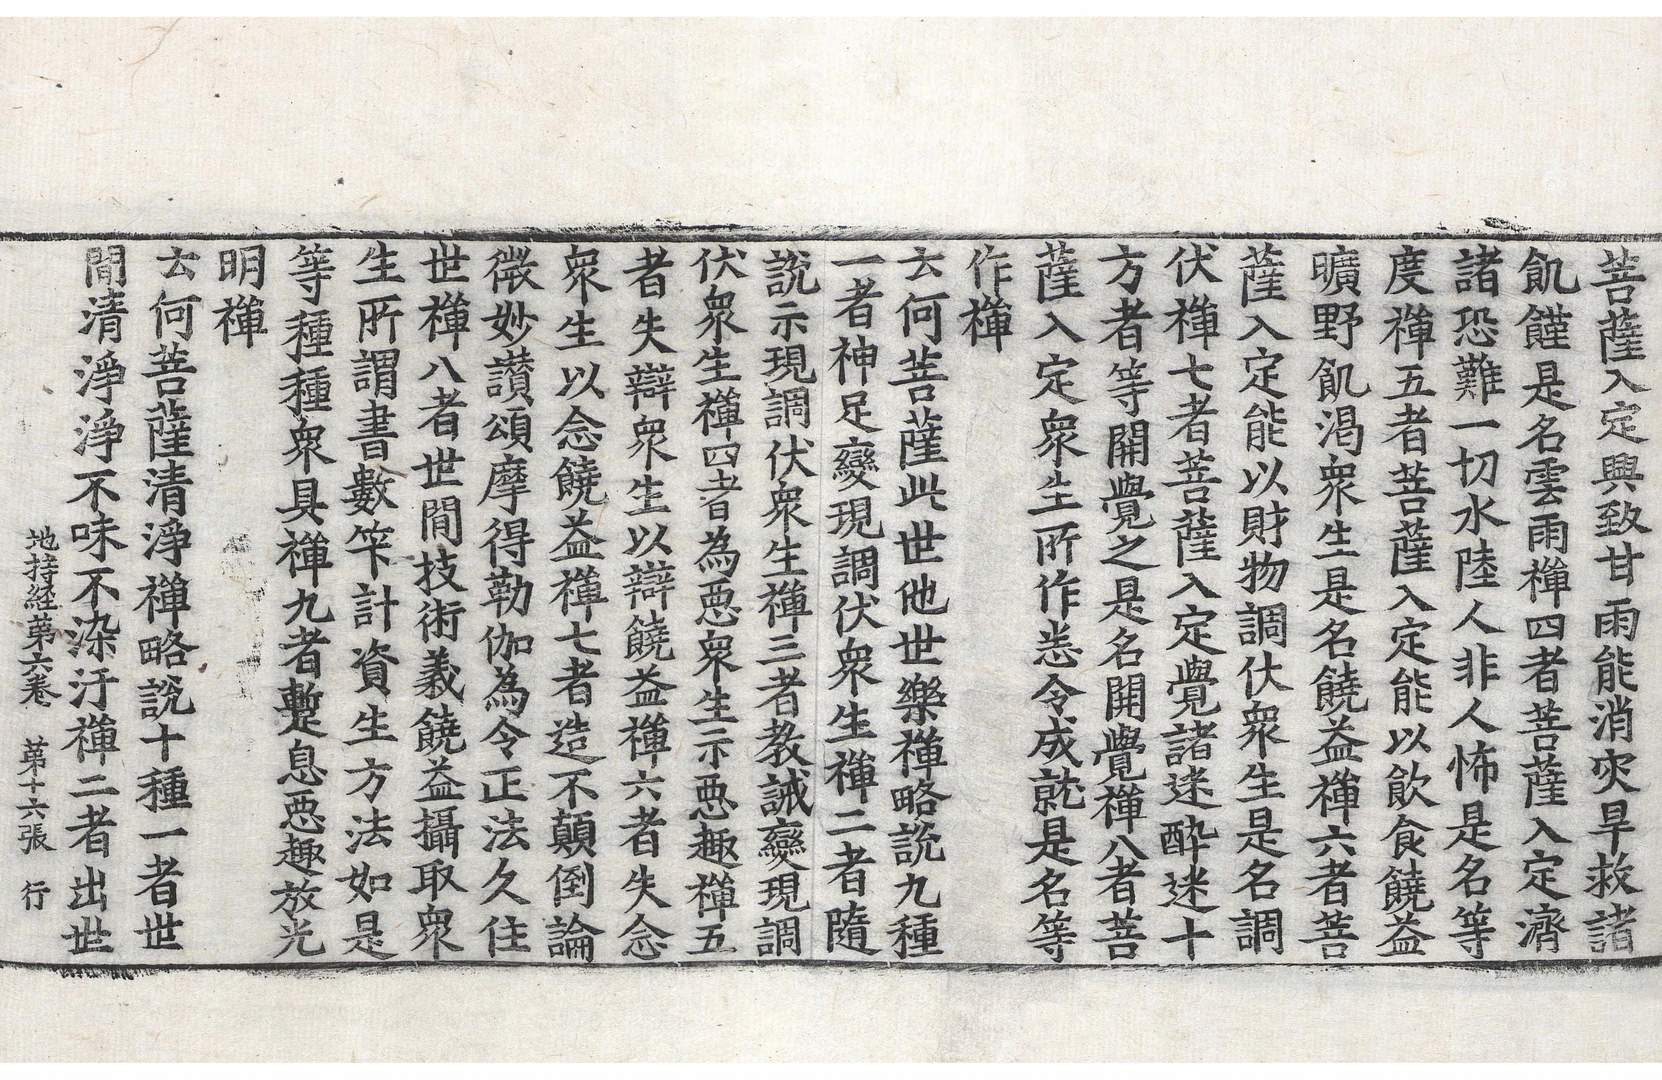 菩薩入定興致甘雨能消灾旱救諸
飢饉是名雲雨禪四者菩薩入定濟
諸恐難一切水陸人非人怖是名等
度禪五者菩薩入定能以飲食饒益
曠野飢渴衆生是名饒益禪六者菩
薩入定能以財物調伏衆生是名調
伏禪七者菩薩入定覺諸迷醉迷十
方者等開覺之是名開覺禪八者菩
薩入定衆生所作悉令成就是名等
作禪
云何菩薩此世他世樂禪略說九種
一者神足變現調伏衆生禪二者隨
說示現調伏衆生禪三者教誡變現調
伏衆生禪四者為惡衆生示惡趣禪五
者失辯衆生以辯饒益禪六者失念
衆生以念饒益禪七者造不顛倒論
微妙讚頌摩得勒伽為令正法久住
世禪八者世間技術義饒益攝取衆
生所謂書數筭計資生方法如是
等種種衆具禪九者暫息惡趣放光
明禪
云何菩薩清淨禪略說十種一者世
間清淨淨不味不染汙禪二者出世
地持經第六卷　第十六張　行